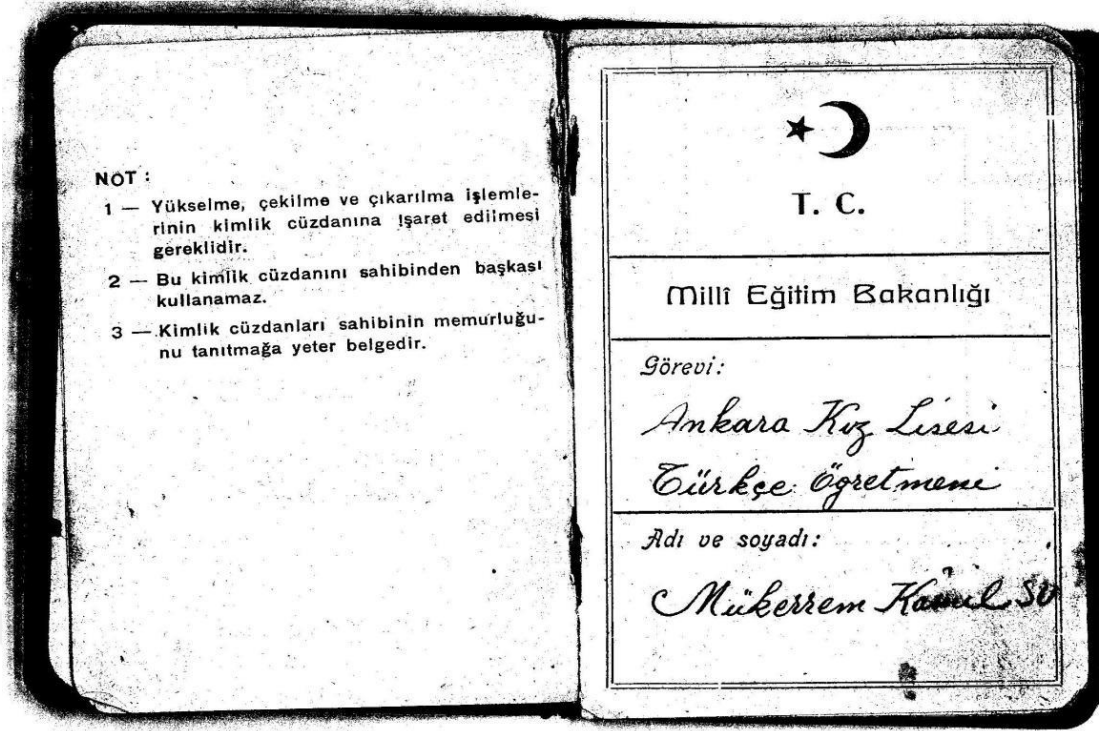 NOT :
1 — Yükselme, çekilme ve çıkarılma işlemle-
rinin kimlik cüzdanına işaret edilmesi
gereklidir.
2 — Bu kimlik cüzdanını sahibinden başkası
kullanamaz.
3 — Kimlik cüzdanları sahibinin memurluğu-
nu tanıtmağa yeter belgedir.
T. C.
Millî Eğitim Bakanlığı
Görevi:
Ankara Kız Lisesi
Türkçe Öğretmeni
Adı ve soyadı:
Mükerrem Kâmil SU